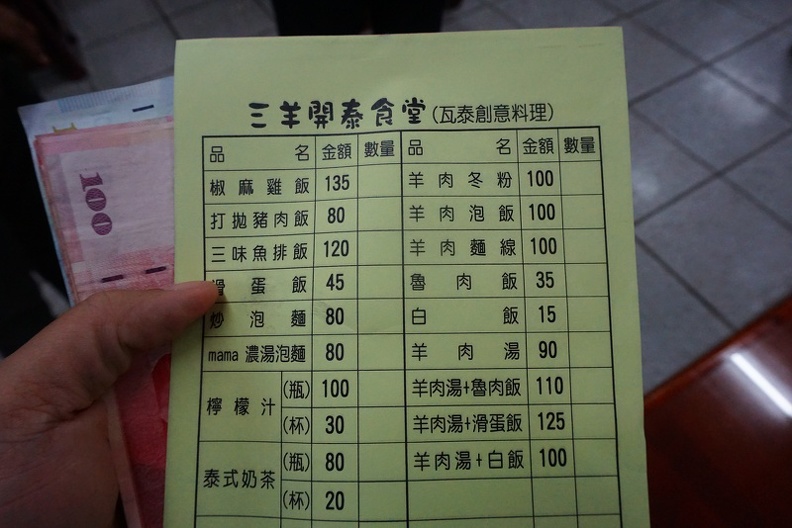 三羊開泰食堂(瓦泰創意料理)
品名 金額 數量 品名 金額 數量
椒麻雞飯 135 羊肉冬粉 100
打拋豬肉飯 80 羊肉泡飯 100
三味魚排飯 120 羊肉麵線 100
滑蛋飯 45 魯肉飯 35
炒泡麵 80 白飯 15
mama濃湯泡麵 80 羊肉湯 90
檸檬汁 (瓶) 100 羊肉湯+魯肉飯 110
(杯) 30 羊肉湯+滑蛋飯 125
泰式奶茶 (瓶) 80 羊肉湯+白飯 100
(杯) 20
100